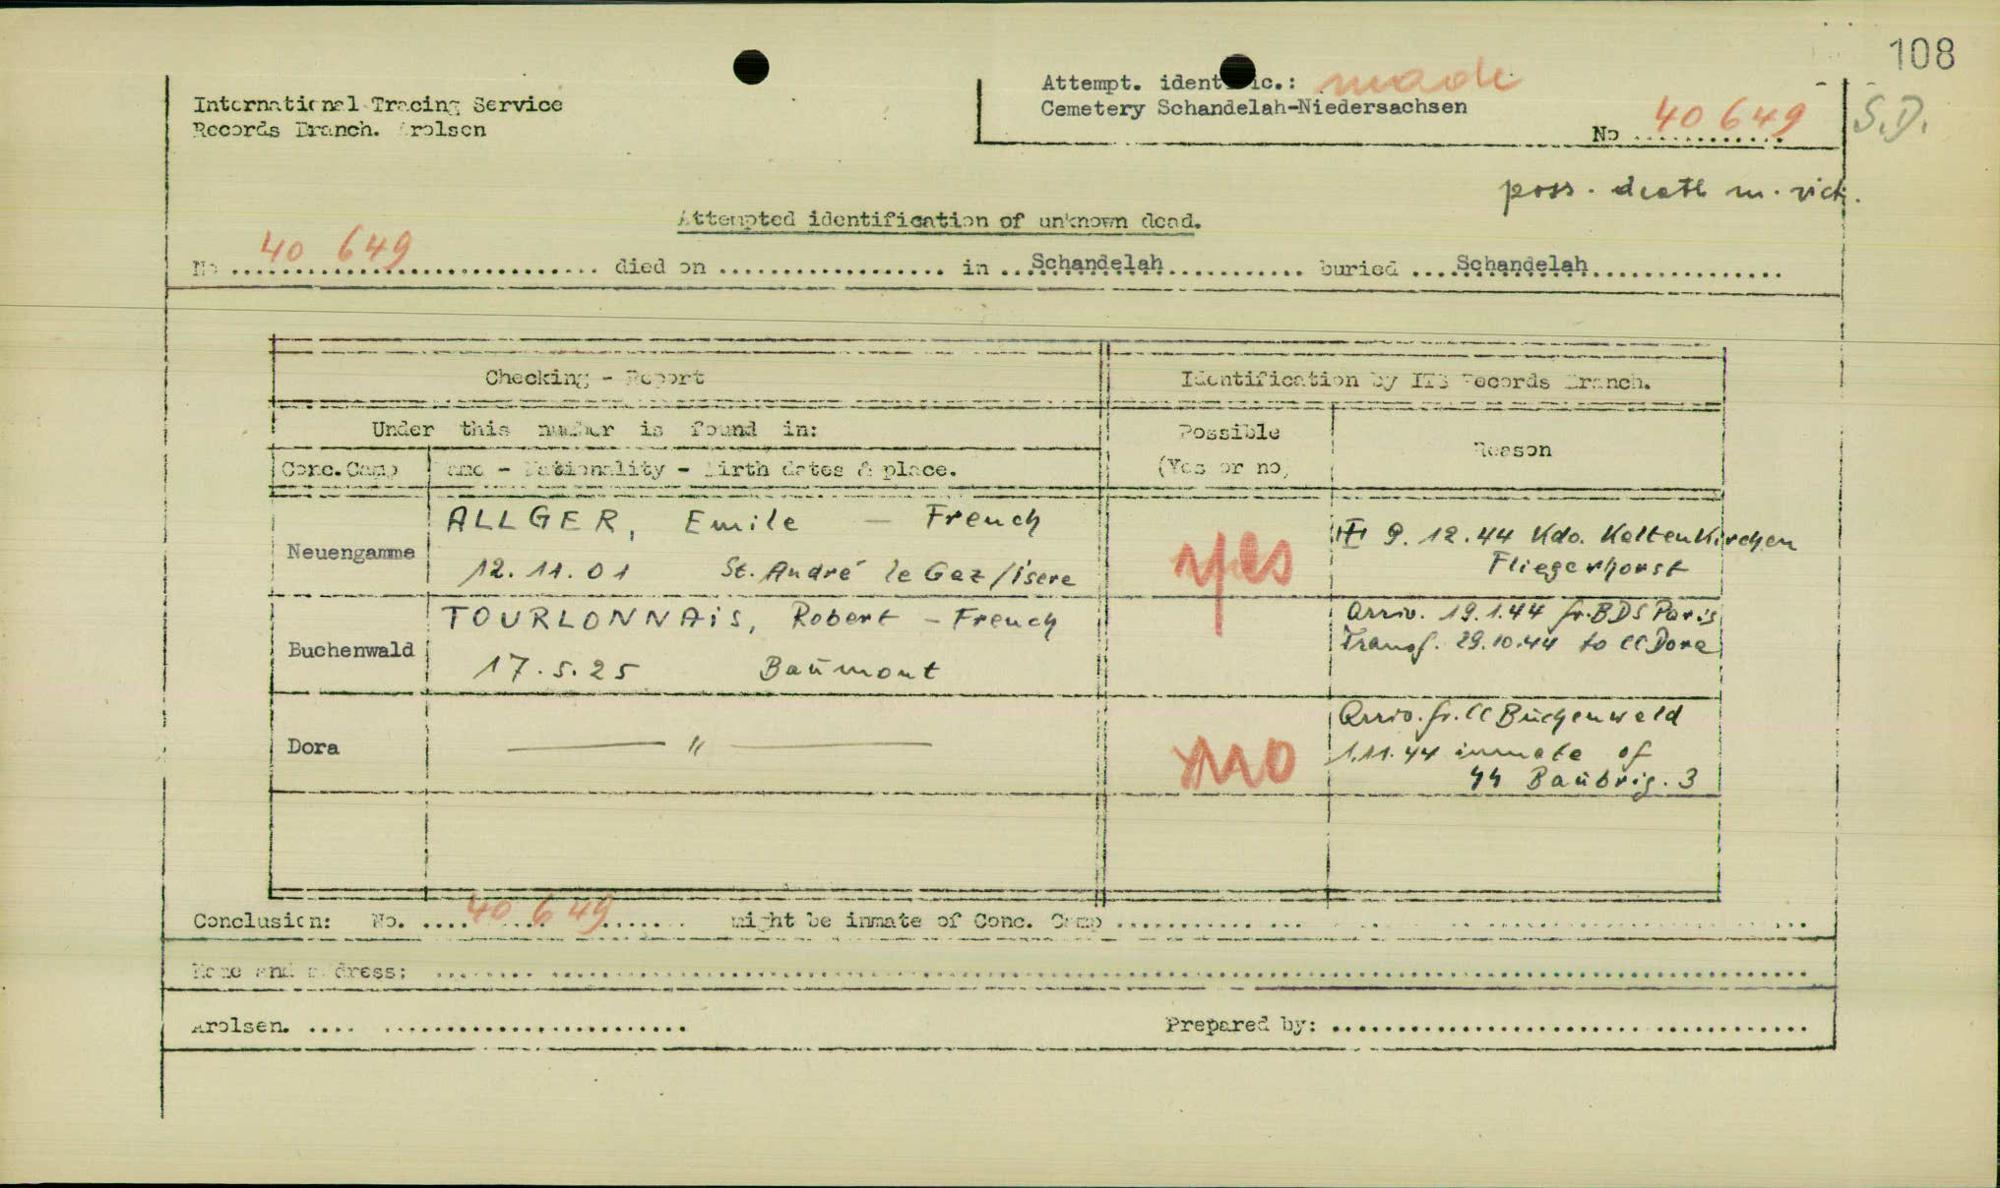 108
Attempt. identific.: made
International Tracing Service
Cemetery Schandelah-Niedersachsen
Records Branch. Arolsen
No ............ 40 649
S.D.
poss. death m. vich.
Attempted identification of unknown dead.
No 40 649 died on .................. in ...Schandelah............ buried ....Schandelah................
Checking - Report
Identification by ITS Records Branch.
Under this number is found in:
Possible
(Yes or no)
Reason
Conc.Camp
Name - Nationality - Birth dates & place.
Neuengamme
ALLGER, Emile — French
12.11.01 St. André le Gaz/isere
yes
9.12.44 Kdo. Kaltenkirchen
Fliegerhorst
Buchenwald
TOURLONNAiS, Robert - French
17.5.25 Baŭmont
Arriv. 19.1.44 fr. BDS Paris
Transf. 29.10.44 to CC Dora
Dora
——— " ———
no
Arriv. fr. CC Bŭchenwald
1.11.44 inmate of
Baŭbrig. 3
Conclusion: No. 40 649 might be inmate of Conc. Camp ............
Name and address: ............
Arolsen. ............
Prepared by: ............